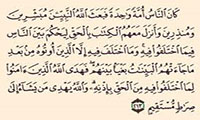 كَانَ ٱلنَّاسُ أُمَّةً وَٰحِدَةً فَبَعَثَ ٱللَّهُ ٱلنَّبِيِّـۧنَ مُبَشِّرِينَ
وَمُنذِرِينَ وَأَنزَلَ مَعَهُمُ ٱلْكِتَٰبَ بِٱلْحَقِّ لِيَحْكُمَ بَيْنَ ٱلنَّاسِ
فِيمَا ٱخْتَلَفُوا۟ فِيهِ وَمَا ٱخْتَلَفَ فِيهِ إِلَّا ٱلَّذِينَ أُوتُوهُ مِنۢ بَعْدِ
مَا جَآءَتْهُمُ ٱلْبَيِّنَٰتُ بَغْيًۢا بَيْنَهُمْ فَهَدَى ٱللَّهُ ٱلَّذِينَ ءَامَنُوا۟
لِمَا ٱخْتَلَفُوا۟ فِيهِ مِنَ ٱلْحَقِّ بِإِذْنِهِۦ وَٱللَّهُ يَهْدِى مَن يَشَآءُ إِلَىٰ
صِرَٰطٍ مُّسْتَقِيمٍ ٢١٣